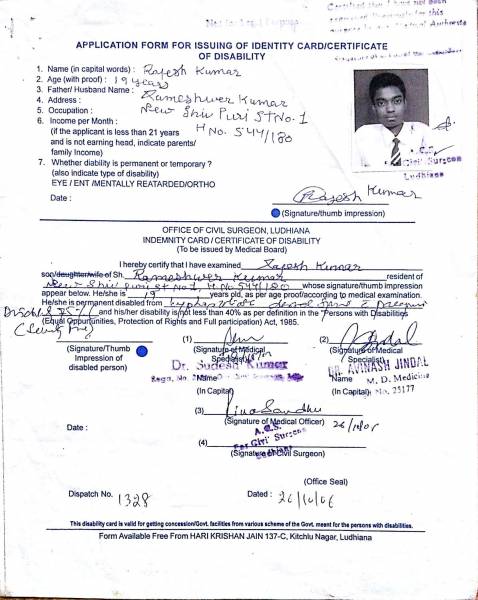 Certified that I have not been
APPLICATION FORM FOR ISSUING OF IDENTITY CARD/CERTIFICATE
OF DISABILITY
1. Name (in capital words) : Rajesh Kumar
2. Age (with proof) : 19 years
3. Father/ Husband Name : Rameshwer Kumar
4. Address : New Shiv Puri St No. 1
5. Occupation : H No. 544/180
6. Income per Month :
(if the applicant is less than 21 years
and is not earning head, indicate parents/
family Income)
7. Whether diability is permanent or temporary ?
(also indicate type of disability)
EYE / ENT /MENTALLY REATARDED/ORTHO
Civil Surgeon
Ludhiana
Date :
Rajesh Kumar
(Signature/thumb impression)
OFFICE OF CIVIL SURGEON, LUDHIANA
INDEMNITY CARD / CERTIFICATE OF DISABILITY
(To be issued by Medical Board)
I hereby certify that I have examined Rajesh Kumar
son/daughter/wife of Sh. Rameshwer Kumar resident of
New Shiv Puri St No 1, H. No 544/180 whose signature/thumb impression
appear below. He/she is 19 years old, as per age proof/according to medical examination.
He/she is permanent disabled from
and his/her disability is not less than 40% as per definition in the "Persons with Disabilities
(Equal Oppurtunities, Protection of Rights and Full participation) Act, 1985.
(1)
(2)
(Signature/Thumb
Impression of
disabled person)
(Signature of Medical
Specialist)
Dr. Sudesh Kumar
Name
(In Capital)
(Signature of Medical
Specialist)
DR. AVINASH JINDAL
Name M. D. Medicine
(In Capital) No. 25177
(3)
(Signature of Medical Officer) 26/10/06
A.C.S.
For Civil Surgeon
Ludhiana
Date :
(4)
(Signature Civil Surgeon)
(Office Seal)
Dispatch No. 1328
Dated : 26/10/06
This disability card is valid for getting concession/Govt. facilities from various scheme of the Govt. meant for the persons with disabilities.
Form Available Free From HARI KRISHAN JAIN 137-C, Kitchlu Nagar, Ludhiana